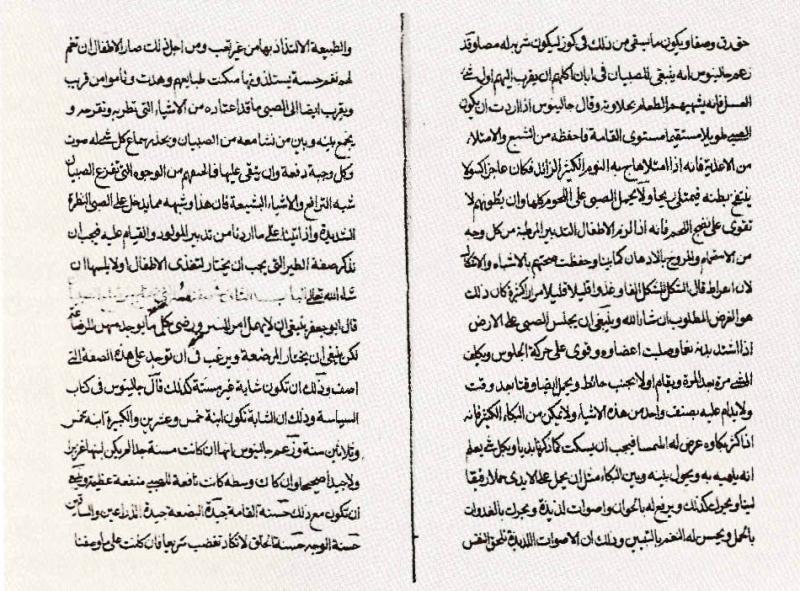 حتى رق وصفا ويكون ما يسقى من ذلك في كوز ليكون شربه له مصا وقد
زعم جالينوس انه ينبغي للصبيان في ابان اكلهم ان يقرب اليهم اول شي
العسل فانه يشهيهم الطعام بحلاوته وقال جالينوس اذا اردت ان يكون
الصبي طويلا مستقيما مستوي القامة فاحفظه من الشبع والامتلاء
من الاغذية فانه اذا امتلا هاج به النوم الكثير الزائد فكان عاجزا كسولا
ينتفخ بطنه فيمتلى ريحا ولا يحمل الصبي على اللحوم كلها وان بطونهم لا
تقوى على نضج اللحم فانه اذا لزم الاطفال التدبير المرطب من كل وجه
من الاستحمام والمروخ بالادهان كما بينا وحفظت صحتهم بالاشياء
لان ابقراط قال الشكل للشكل الفا وغذوا قليلا قليلا مرارا كثيرة كان ذلك
هو الغرض المطلوب ان شا الله وينبغي ان يجلس الصبي على الارض
اذا اشتد بدنه نعما وصلبت اعضاوه وقوى على حركة الجلوس ويكلف
المشي مرة بعد المرة ويقام اولا بجنب حائط ويحمل ايضا وقتا بعد وقت
ولا يدام عليه بصنف واحد من هذه الاشيا ولا يمكن من البكاء الكثير فانه
اذا كثر بكاوه عرض له فيجب ان يسكت كما ذكرنا بديا وبكل شي يعلم
انه يلهيه به ويحول بينه وبين البكاء مثل ان يحمل على الايدي حملا رفيقا
لينا ويحرك كذلك ويرفع له بالحان واصوات لذيذة ويحرك بالغدوات
بالحمل ويحسن له النغم وذلك ان الاصوات اللذيذة تلحق النفس
والطبيعة الالتذاذ بها من غير تعب ومن اجل ذلك صار الاطفال ان تنغم
لهم نغم حسنة يستلذونها سكنت طبايعهم وهدت وناموا من قرب
ويقرب ايضا الى الصبي ما قد اعتاده من الاشياء التي تطربه وتفرحه و
يجمع بينه وبين من نشا معه من الصبيان ويحذر جماع كل شي له صوت
وكل وجبة دفعة وان يتقى عليها من الوجوه التي تفزع الصبيان
شبه والاشياء الشنيعة فان هذا وشبهه مما يدخل على الصبي النظرة
الشديدة واذ اتينا على ما اردنا من تدبير المولود والقيام عليه فيجب ان
نذكر صفة الظير التي يجب ان تختار لتغذى الاطفال اولا بلبنها ان
شاء الله تعالى
قال ابو جعفر ينبغي ان لا يهمل امر المسر ويرضى بكل ما يوجد منهن للرضاعة
لكن ينبغي ان يختار المرضعة ويرغب في ان توجد على هذه الصفة التي
اصف وذلك ان تكون شابة غير مسنة كذلك قال جالينوس في كتاب
السياسة وذلك ان الشابة تكون ابنة خمس وعشرين والكبيرة ابنة خمس
وثلاثين سنة وزعم جالينوس انها ان كانت مسنة جدا لم يكن لبنها غزيرا
ولا جيدا صحيحا وان كان وسطه كانت نافعة للصبي منفعة عظيمة
ان تكون مع ذلك حسنة القامة جيدة البضعة جيدة الذراعين والساقين
حسنة الوجه حسنة الخلق لا تكاد تغضب سريعا فان كانت على ما وصفنا